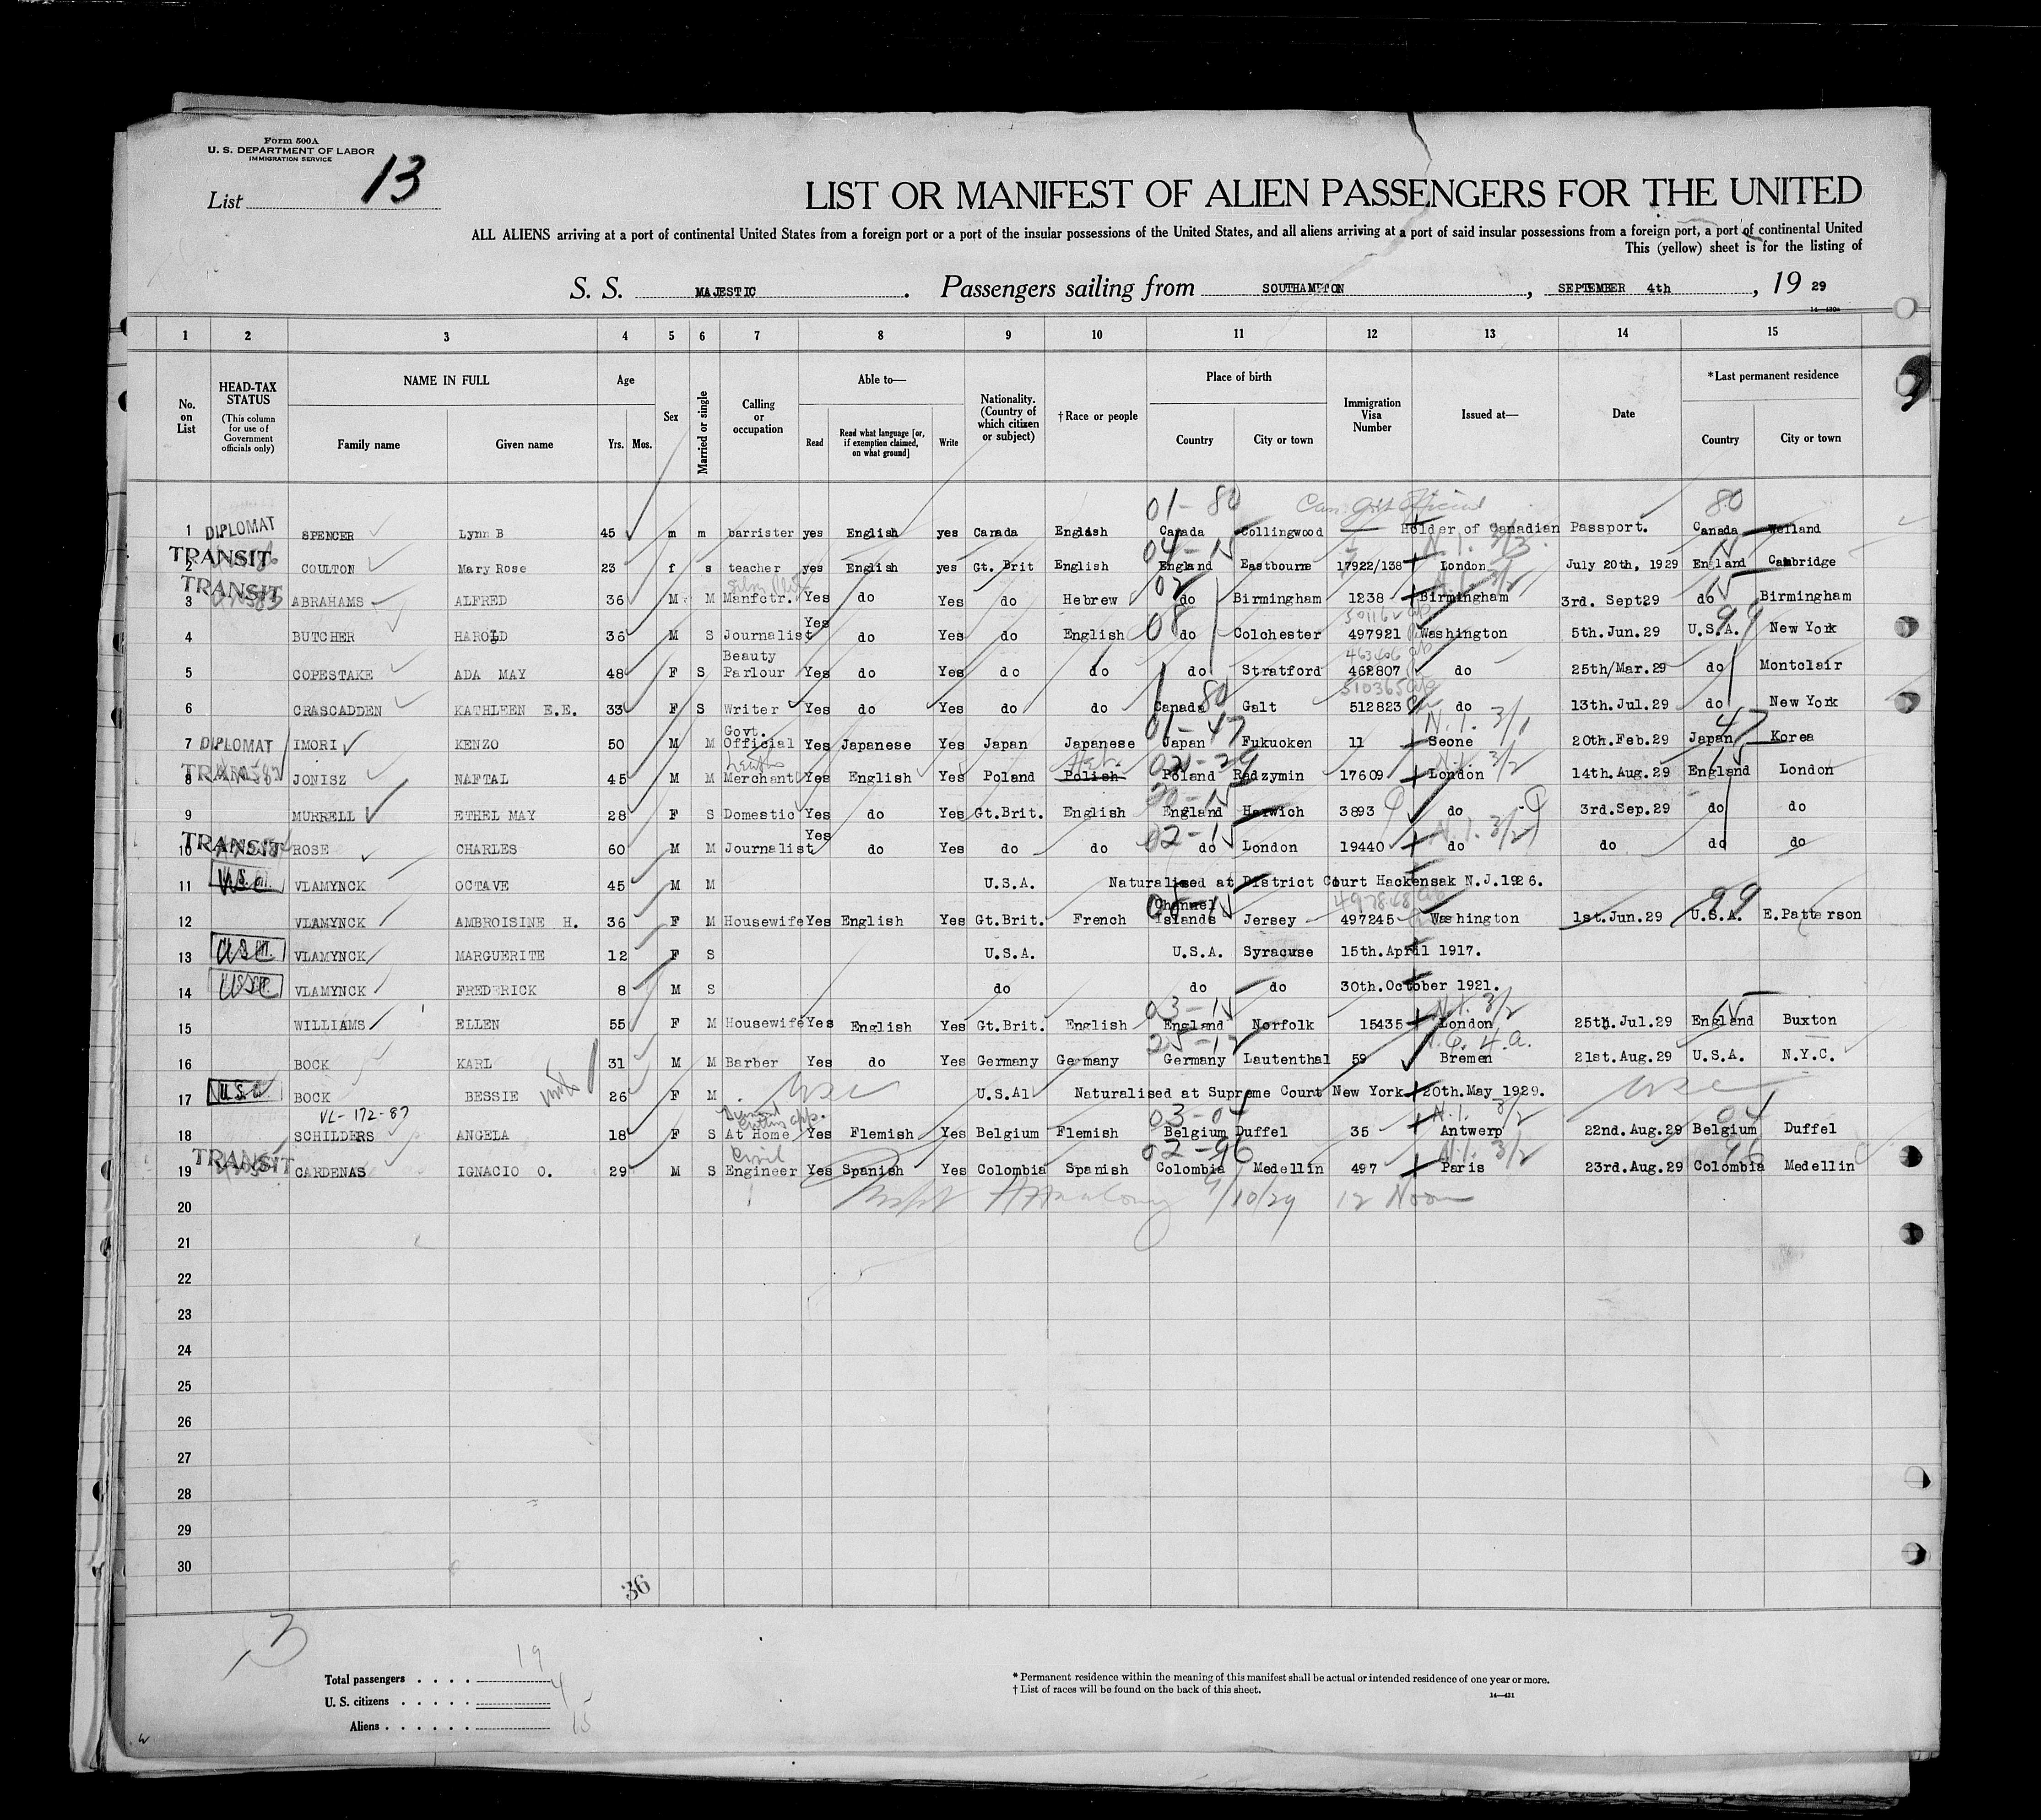 Form 500A
U. S. DEPARTMENT OF LABOR
IMMIGRATION SERVICE
List 13
LIST OR MANIFEST OF ALIEN PASSENGERS FOR THE UNITED
ALL ALIENS arriving at a port of continental United States from a foreign port or a port of the insular possessions of the United States, and all aliens arriving at a port of said insular possessions from a foreign port, a port of continental United
This (yellow) sheet is for the listing of
S. S. MAJESTIC. Passengers sailing from SOUTHAMPTON, SEPTEMBER 4th, 19 29
14—430a
1 2 3 4 5 6 7 8 9 10 11 12 13 14 15
No. on List
HEAD-TAX STATUS (This column for use of Government officials only)
NAME IN FULL
Family name Given name
Age
Yrs. Mos.
Sex
Married or single
Calling or occupation
Able to—
Read
Read what language [or, if exemption claimed, on what ground]
Write
Nationality. (Country of which citizen or subject)
†Race or people
Place of birth
Country City or town
Immigration Visa Number
Issued at—
Date
*Last permanent residence
Country City or town
01-80 Can. Gvt Official 80
1 DIPLOMAT SPENCER Lynn B 45 m m barrister yes English yes Canada English Canada Collingwood — Holder of Canadian Passport. Canada Welland
04-15 N.I. 3/3 15
2 TRANSIT COULTON Mary Rose 23 f s teacher yes English yes Gt. Brit English England Eastbourne 17922/138 London July 20th, 1929 England Cambridge
02 N.I. 3/2 15
3 TRANSIT ABRAHAMS ALFRED 36 M M Manfctr. Yes do Yes do Hebrew do Birmingham 1238 Birmingham 3rd. Sept29 do Birmingham
08 99
4 BUTCHER HAROLD 36 M S Journalist Yes do Yes do English do Colchester 497921 Washington 5th.Jun.29 U.S.A. New York
463406
5 COPESTAKE ADA MAY 48 F S Beauty Parlour Yes do Yes do do do Stratford 462807 do 25th/Mar.29 do Montclair
80 510365
6 CRASCADDEN KATHLEEN E.E. 33 F S Writer Yes do Yes do do Canada Galt 512823 do 13th.Jul.29 do New York
01-47 N.I. 3/1 47
7 DIPLOMAT IMORI KENZO 50 M M Govt. Official Yes Japanese Yes Japan Japanese Japan Fukuoken 11 Seone 20th.Feb.29 Japan Korea
Heb. 02-29 N.I. 3/2 15
8 TRANSIT JONISZ NAFTAL 45 M M Merchant Yes English Yes Poland Polish Poland Radzymin 17609 London 14th.Aug.29 England London
20-15
9 MURRELL ETHEL MAY 28 F S Domestic Yes do Yes Gt.Brit. English England Harwich 3893 do 3rd.Sep.29 do do
02-15 N.I. 3/2
10 TRANSIT ROSE CHARLES 60 M M Journalist Yes do Yes do do do London 19440 do do do do
11 VLAMYNCK OCTAVE 45 M M U.S.A. Naturalised at District Court Hackensak N.J.1926.
99
12 VLAMYNCK AMBROISINE H. 36 F M Housewife Yes English Yes Gt.Brit. French Channel Islands Jersey 497245 Washington 1st.Jun.29 U.S.A. E.Patterson
13 USC VLAMYNCK MARGUERITE 12 F S U.S.A. U.S.A. Syracuse 15th.April 1917.
14 USC VLAMYNCK FREDERICK 8 M S do do do 30th.October 1921.
03-15 N.I. 3/2 15
15 WILLIAMS ELLEN 55 F M Housewife Yes English Yes Gt.Brit. English England Norfolk 15435 London 25th.Jul.29 England Buxton
25-17 N.Q. 4.a.
16 BOCK KARL 31 M M Barber Yes do Yes Germany Germany Germany Lautenthal 59 Bremen 21st.Aug.29 U.S.A. N.Y.C.
17 BOCK BESSIE 26 F M USC U.S.A1 Naturalised at Supreme Court New York 20th.May 1929. USC
VL-172-87 03-04 N.I. 3/2 04
18 SCHILDERS ANGELA 18 F S At Home Yes Flemish Yes Belgium Flemish Belgium Duffel 35 Antwerp 22nd.Aug.29 Belgium Duffel
Civil 02-96 N.I. 3/2 96
19 TRANSIT CARDENAS IGNACIO O. 29 M S Engineer Yes Spanish Yes Colombia Spanish Colombia Medellin 497 Paris 23rd.Aug.29 Colombia Medellin
20 9/10/29 12 Noon
21
22
23
24
25
26
27
28
29
30
36
Total passengers . . . . 19
U. S. citizens . . . . . 4
Aliens . . . . . . 15
* Permanent residence within the meaning of this manifest shall be actual or intended residence of one year or more.
† List of races will be found on the back of this sheet.
14—431